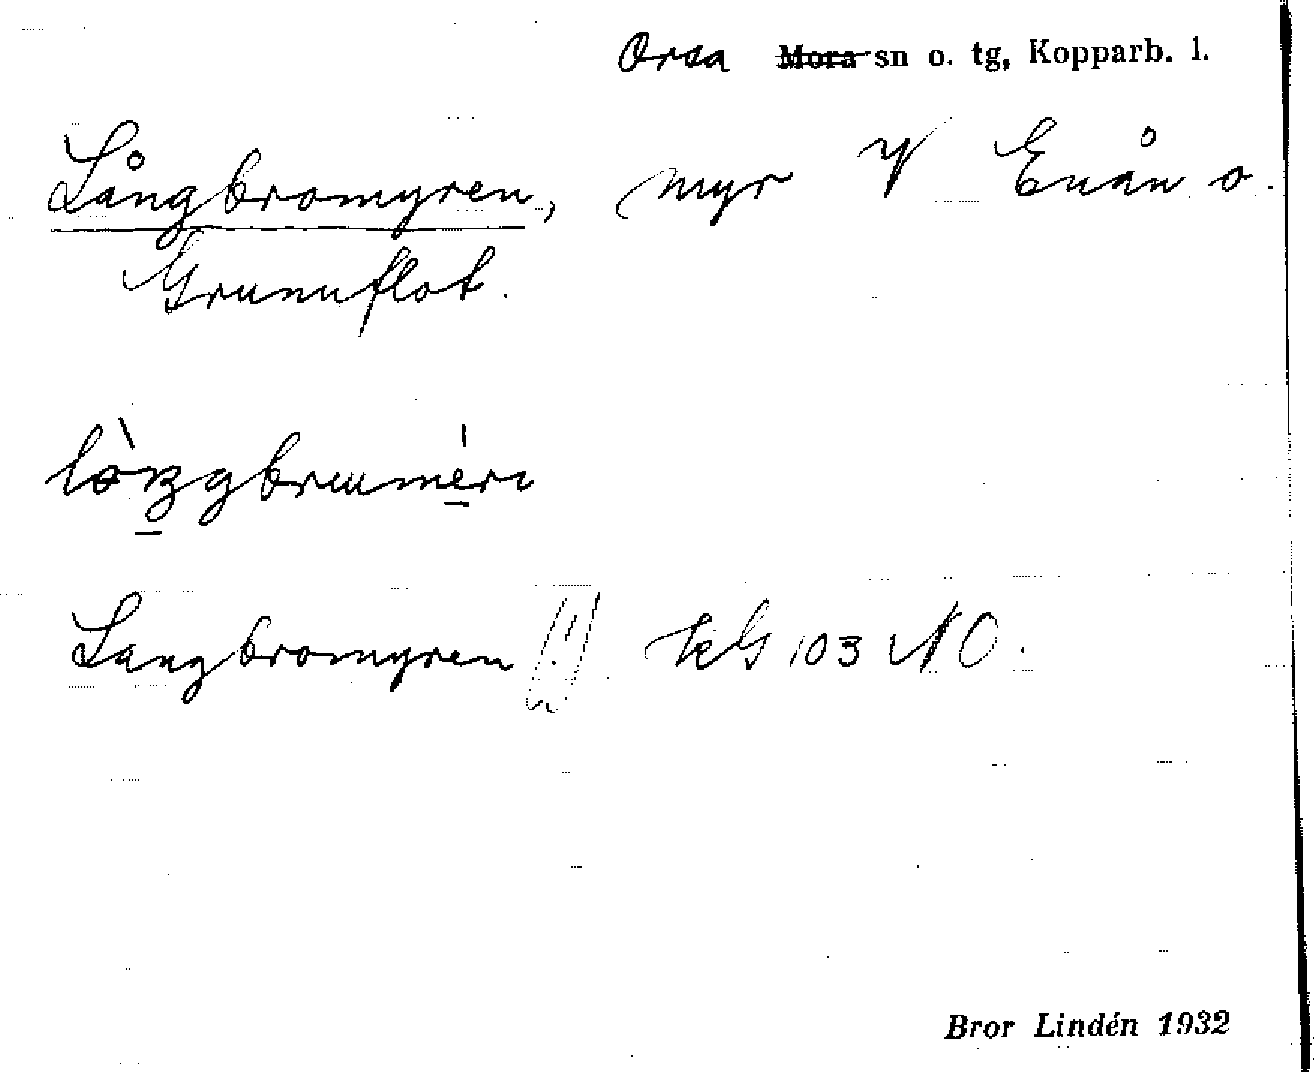 Orsa Mora sn o. tg, Kopparb. l.
Långbromyren, myr V Enån o.
Grunuflot.
Langbromyren (!) kG 103 NO.
Bror Lindén 1932